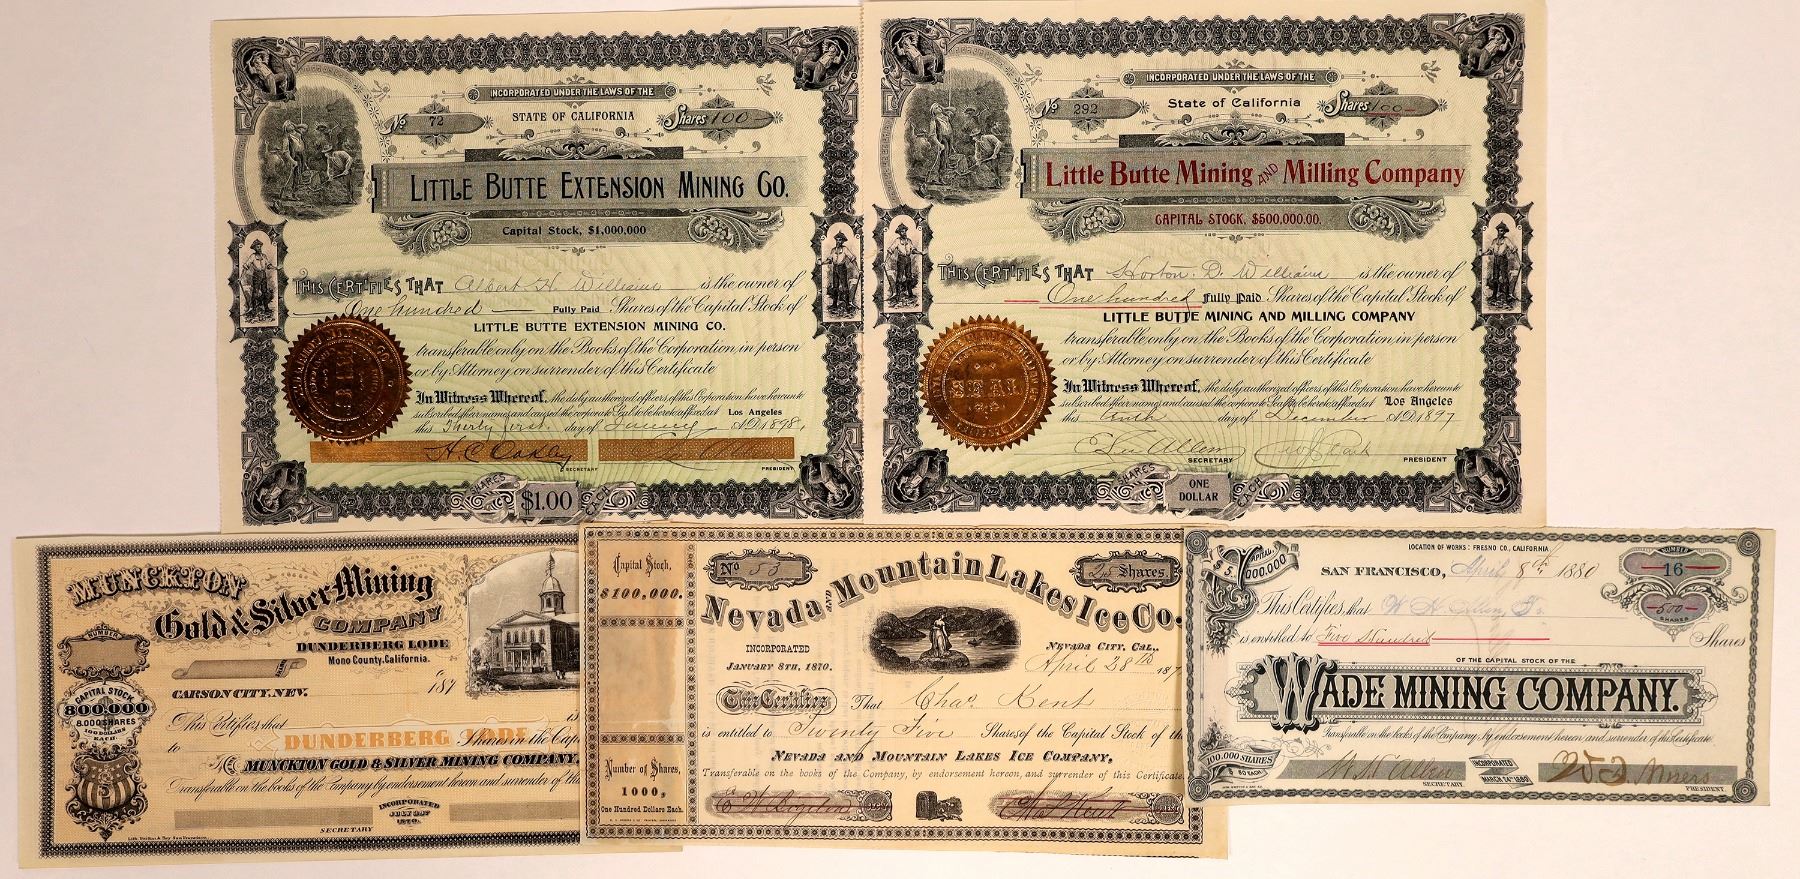 INCORPORATED UNDER THE LAWS OF THE
STATE OF CALIFORNIA
No 72
Shares 100
LITTLE BUTTE EXTENSION MINING CO.
Capital Stock, $1,000,000
THIS CERTIFIES THAT Albert H Williams is the owner of
One hundred Fully Paid Shares of the Capital Stock of
LITTLE BUTTE EXTENSION MINING CO.
transferable only on the Books of the Corporation, in person
or by Attorney on surrender of this Certificate
In Witness Whereof, the duly authorized officers of this Corporation have hereunto
subscribed their names and caused the corporate Seal to be hereto affixed at Los Angeles
this Thirty first day of January A.D. 1898.
H C Oakley
SECRETARY
PRESIDENT
SHARES $1.00 EACH
INCORPORATED UNDER THE LAWS OF THE
State of California
No 292
Shares 100
Little Butte Mining AND Milling Company
CAPITAL STOCK, $500,000.00.
THIS CERTIFIES THAT Horton D. Williams is the owner of
One hundred Fully Paid Shares of the Capital Stock of
LITTLE BUTTE MINING AND MILLING COMPANY
transferable only on the Books of the Corporation, in person
or by Attorney on surrender of this Certificate
SEAL
In Witness Whereof, the duly authorized officers of this Corporation have hereunto
subscribed their names and caused the corporate Seal to be hereto affixed at Los Angeles
this tenth day of December A.D. 1897
Allen
SECRETARY
PRESIDENT
SHARES ONE DOLLAR EACH
MUNCKTON
Gold & Silver Mining
COMPANY
DUNDERBERG LODE
Mono County, California.
NUMBER
SHARES
CARSON CITY, NEV. 187
CAPITAL STOCK
800,000
8,000 SHARES
100 DOLLARS
EACH.
This Certifies that is
to DUNDERBERG LODE Shares in the Capi
MUNCKTON GOLD & SILVER MINING COMPANY,
Transferable on the books of the Company by endorsement hereon and surrender of th
INCORPORATED
1870.
SECRETARY
Capital Stock,
$100,000.
Number of Shares,
1000,
One Hundred Dollars Each.
No 53
25 Shares
Nevada AND Mountain Lakes Ice Co.
INCORPORATED
JANUARY 8TH, 1870.
NEVADA CITY, CAL.,
April 28th 187
This Certifies That Chas Kent
is entitled to Twenty Five Shares of the Capital Stock of th
NEVADA AND MOUNTAIN LAKES ICE COMPANY,
Transferable on the books of the Company, by endorsement hereon, and surrender of this Certificate
Chas Kent
CAPITAL
$5,000,000.
LOCATION OF WORKS: FRESNO CO., CALIFORNIA
SAN FRANCISCO, April 8th 1880
NUMBER
16
500
SHARES
This Certifies that W H Allen
is entitled to Five Hundred Shares
OF THE CAPITAL STOCK OF THE
WADE MINING COMPANY.
Transferable on the books of the Company, by endorsement hereon and surrender of this Certificate
100,000 SHARES
$50 EACH
W H Allen
SECRETARY.
INCORPORATED
MARCH 24TH 1880
Myers
PRESIDENT